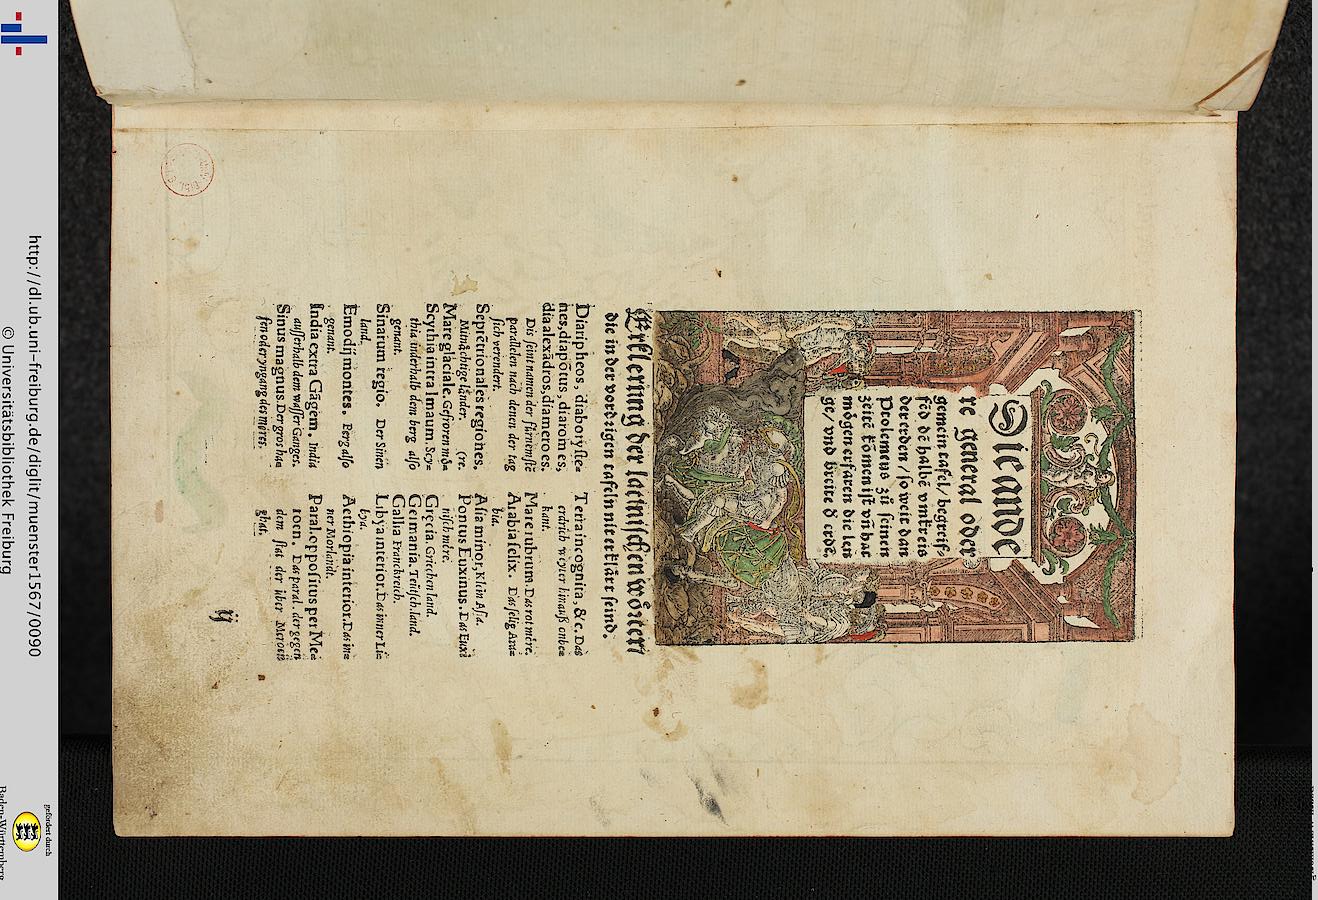 Die ande
re general oder
gemein tafel/ begreif⸗
fēd dē halbē vmkreis
der erden / so weit dan
Ptolemeus zů seinen
zeitē kōmen ist vñ hat
mögen erfaren die len
ge/ vnd breite d' erdē.
Erklerung der latinischen wörter/
die in der vordrigen tafeln nit erklärt seind.
Diaripheos, diaborystẽ⸗
nes, diapōtus, diaromẽs,
dia alexādros, diameroes.
Dis seint namen der fürnēmstē
parallelen nach denen der tag
sich verendert.
Septētrionales regiones,
Mitnächtige länder. (re.
Mare glaciale. Gefroren mö⸗
Scythia intra Imaum. Scy⸗
thia inderhalb dem berg also
genant.
Sinarum regio. Der Sinen
land.
Emodij montes. Berg also
genant.
India extra Gāgem. India
ausserhalb dem wasser Ganges.
Sinus magnus. Der gros ha⸗
fen oder yngang des märes.
Terra incognita, &c. Das
erdrich wyter hinauß onbe⸗
kant.
Mare rubrum. Das rot märe.
Arabia felix. Das selig Ara⸗
bia.
Asia minor, Klein Asia.
Pontus Euxinus. Das Euxi
nisch märe.
Grecia. Griechenland.
Germania. Teütschland.
Gallia Franckreich.
Libya interior. Das inner Li⸗
bya.
Aethiopia interior. Das in⸗
ner Morlandt.
Paral. oppositus per Me⸗
roen. Das paral. der gegen
dem stat der über Meroen
ghat.
ij
http://dl.ub.uni-freiburg.de/diglit/muenster1567/0090
© Universitätsbibliothek Freiburg
gefördert durch
Baden-Württemberg